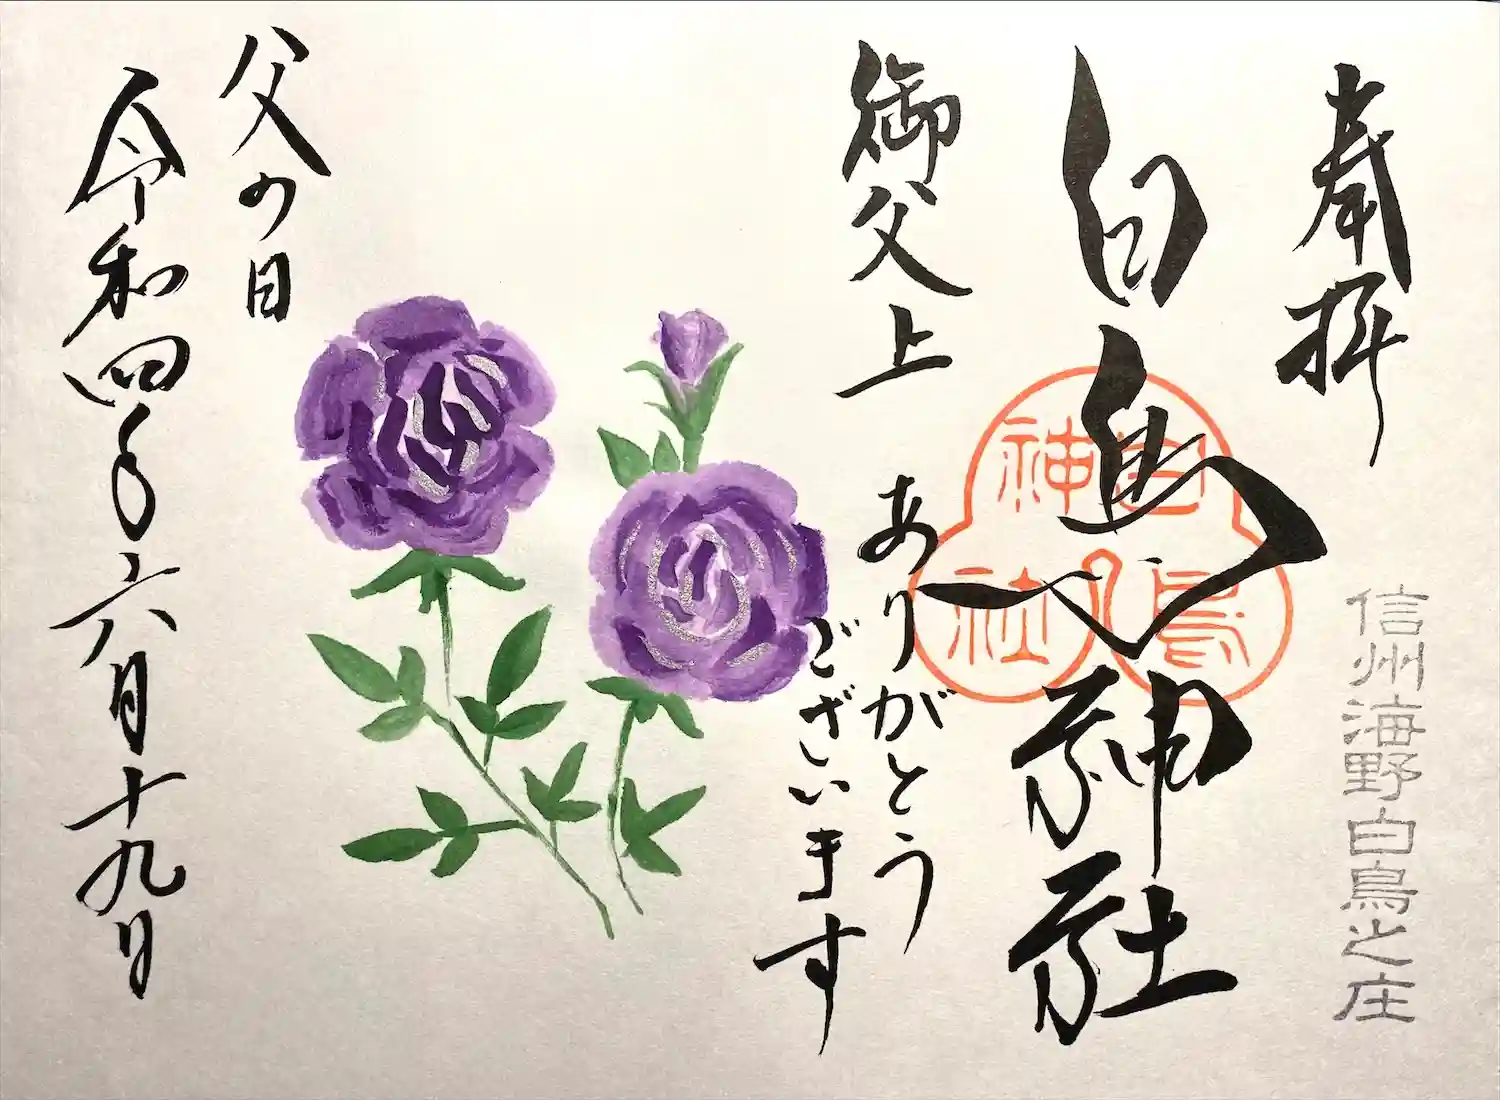 奉拝
信州海野白鳥之庄
白鳥神社
白鳥神社
御父上
ありがとう
ございます
父の日
令和四年六月十九日